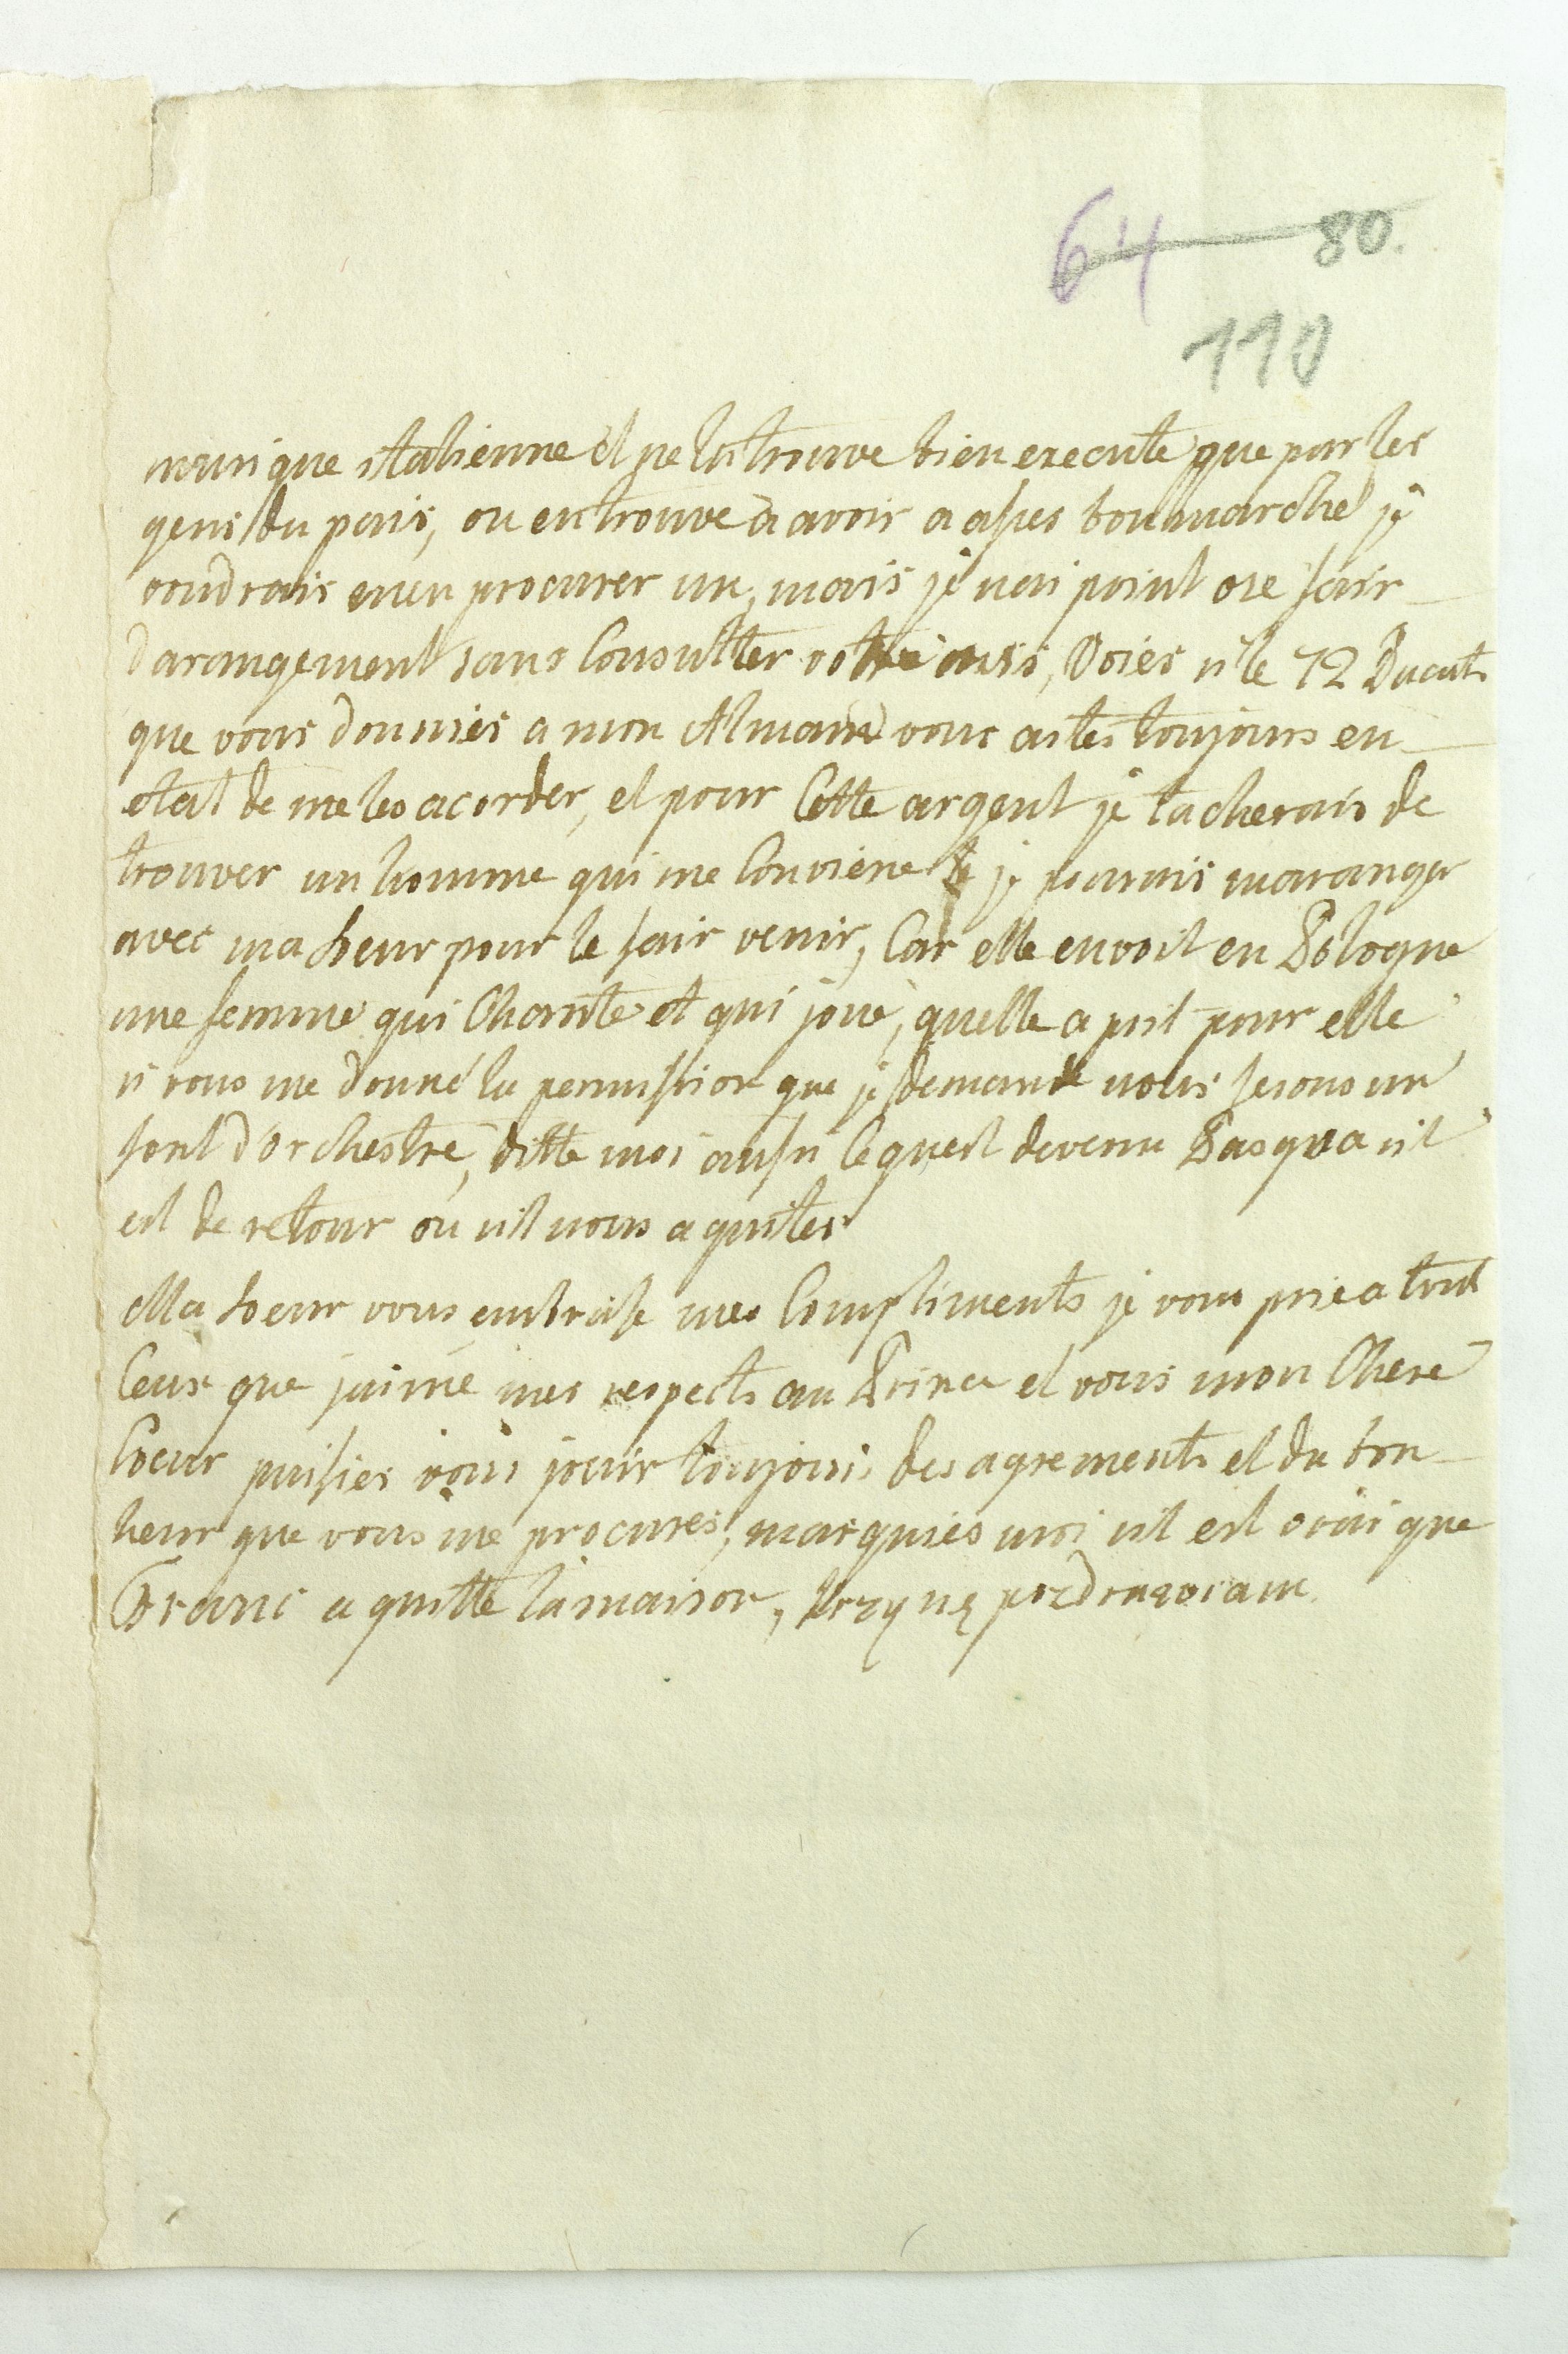 64 80.
110
musique italienne et ne la trouve bien execute que par les
gens du pais, on en trouve a avoir a asses bon marche je
voudrais enen procurer un, mais je nai point ose fair
darangement sans Consulter votre avis, Voies si le 12 Ducats
que vous donnies a mon Almand vous aites toujours en
etat de me les acorder, et pour Cette argent je tacherais de
trouver un homme qui me Conviene je pourais maranger
avec ma Soeur pour le fair venir, Car elle envoit en Pologne
une femme qui Chante et qui joue, quelle a prit pour elle
si vous me donné la permission que je demande nous ferons un
fort d'orchestre, ditte moi aussi Cequest devenu Pasqua sil
est de retour ou sil nous a quites
Ma Soeur vous embrasse mes Compliments je vous prie a tout
Ceux que jaime mes respects au Prince et vous mon Chere
Coeur puissies vous jouir toujours des agrements et du bon
heur que vous me procures, marquies moi sil est vrai que
Franc a quitte la maison, pozdrawiam